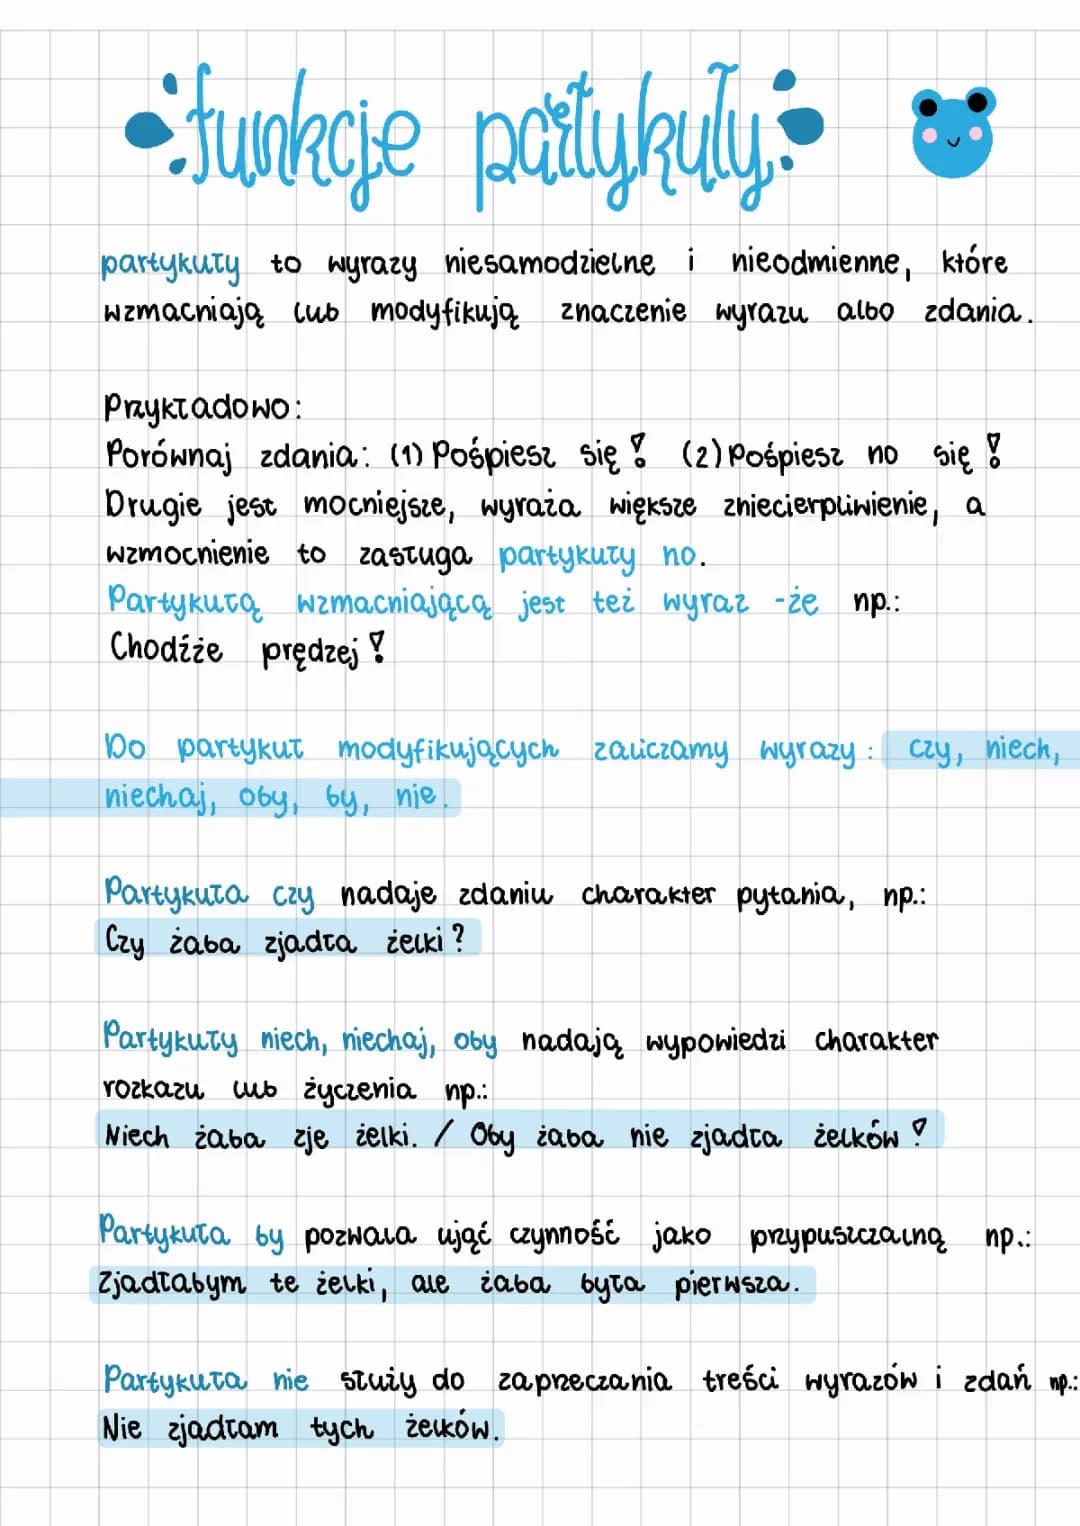 funkcje partykuły
partykuły to wyrazy niesamodzielne i nieodmienne, które
wzmacniają lub modyfikują znaczenie wyrazu albo zdania.
Przykładowo:
Porównaj zdania: (1) Pośpiesz się! (2) Pośpiesz no się!
Drugie jest mocniejsze, wyraża większe zniecierpliwienie, a
wzmocnienie to zasługa partykuły no.
Partykułą wzmacniającą jest też wyraz -że np.:
Chodźże prędzej!
Do partykuł modyfikujących zaliczamy wyrazy: czy, niech,
niechaj, oby, by, nie.
Partykuła czy nadaje zdaniu charakter pytania, np.:
Czy żaba zjadła żelki?
Partykuły niech, niechaj, oby nadają wypowiedzi charakter
rozkazu lub życzenia np.:
Niech żaba zje żelki. / Oby żaba nie zjadła żelków!
Partykuła by pozwala ująć czynność jako przypuszczalną np.:
Zjadłabym te żelki, ale żaba była pierwsza.
Partykuła nie służy do zaprzeczania treści wyrazów i zdań np.:
Nie zjadłam tych żelków.